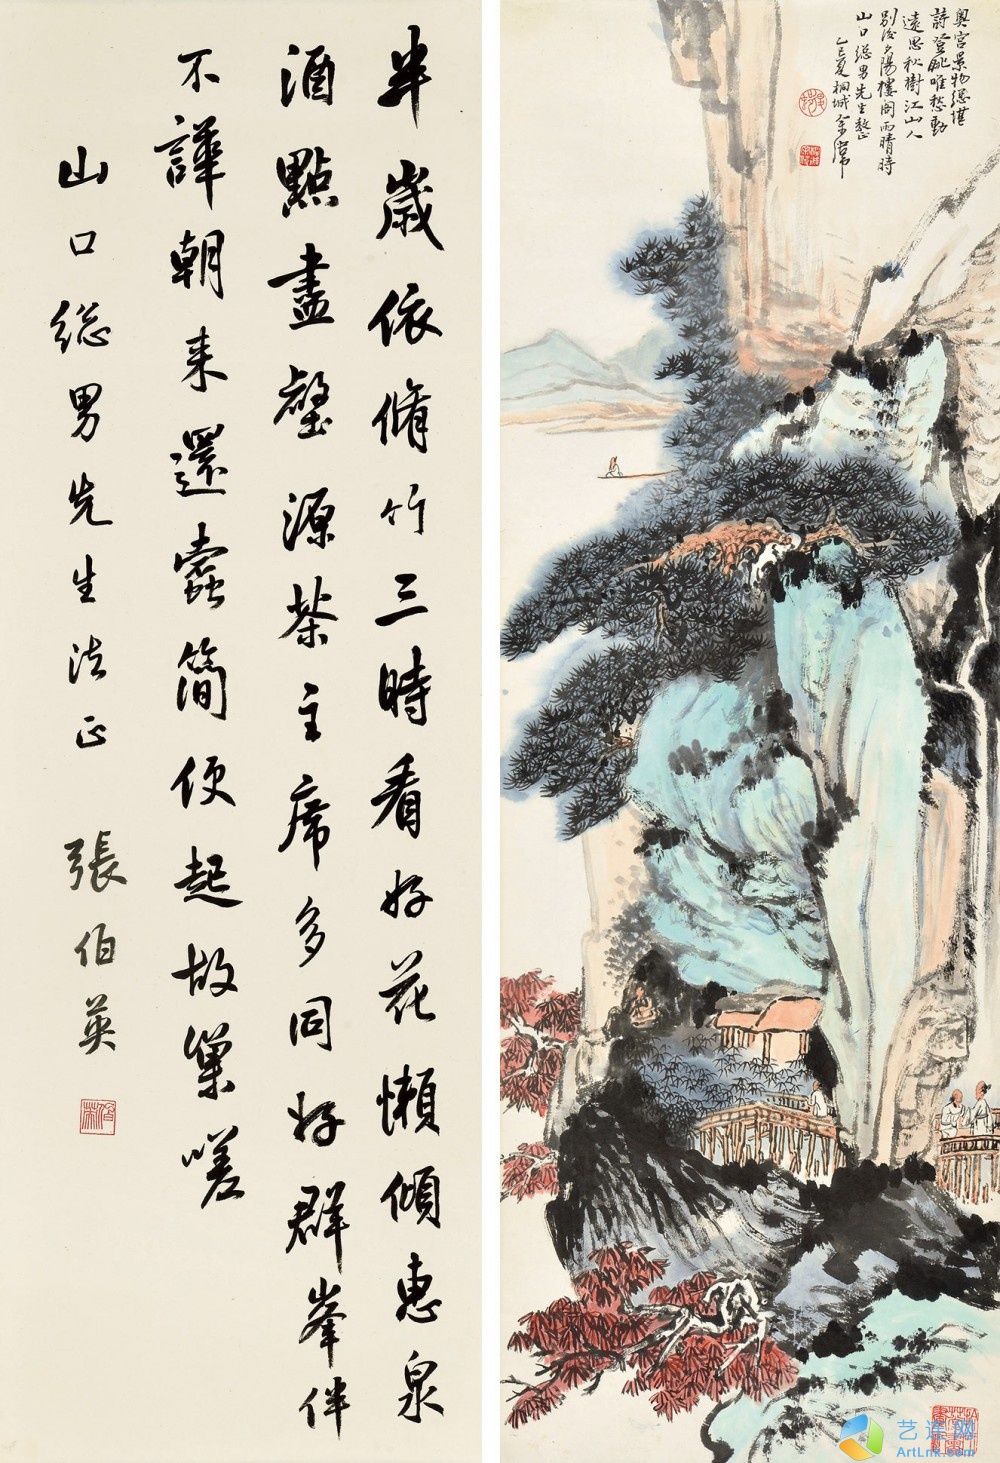 半歲依脩竹三時看好花懶傾惠泉
酒點盡壑源茶主席多同好群峯伴
不譁朝来還蠹簡便起故巢嗟
山口総男先生法正 張伯英
奥宮景物總堪
詩登眺唯愁動
遠思秋樹江山人
別後夕陽樓閣雨晴時
山口総男先生教正
乙巳夏桐城余
艺连网
ArtLnk.com